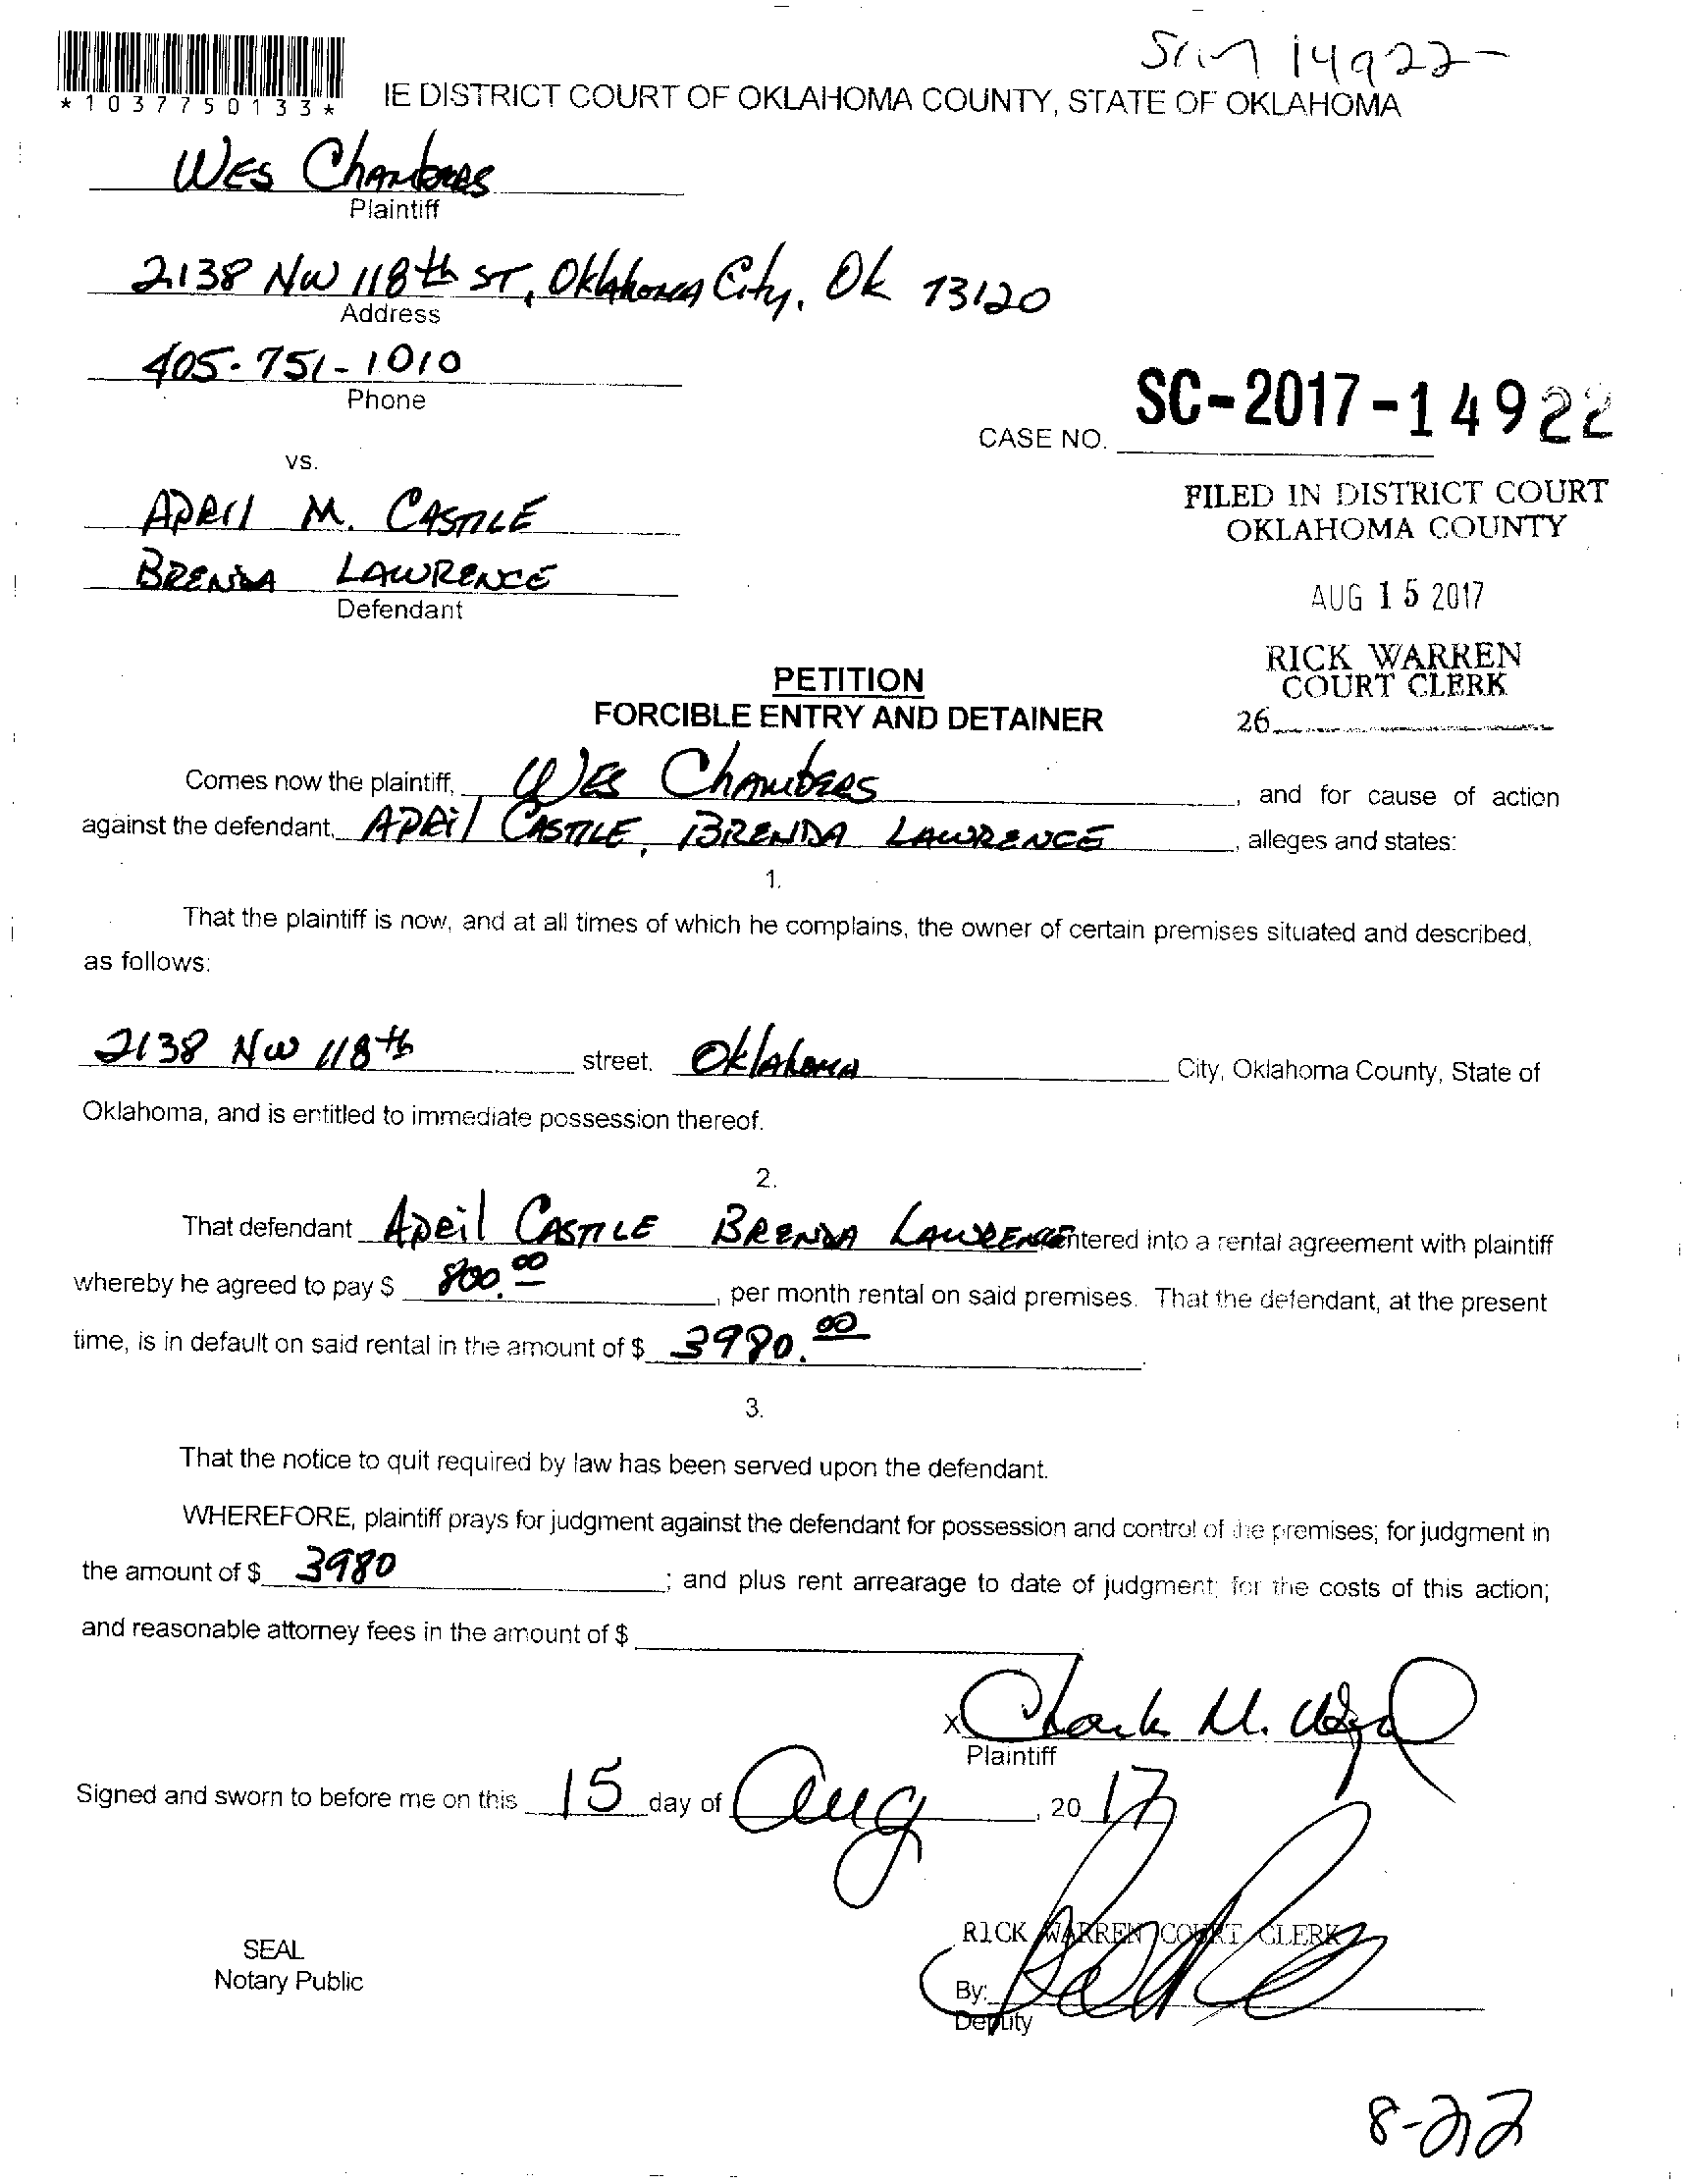 SC-17 14922-
*1037750133*
IE DISTRICT COURT OF OKLAHOMA COUNTY, STATE OF OKLAHOMA
WES CHAMBERS
Plaintiff
2138 NW 118th ST, Oklahoma City, Ok 73120
Address
405-751-1010
Phone
CASE NO. SC-2017-14922
vs.
FILED IN DISTRICT COURT
OKLAHOMA COUNTY
APRIl M. CASTLE
BRENDA LAWRENCE
Defendant
AUG 15 2017
RICK WARREN
COURT CLERK
26
PETITION
FORCIBLE ENTRY AND DETAINER
Comes now the plaintiff, WES CHAMBERS, and for cause of action
against the defendant, APRil CASTLE, BRENDA LAWRENCE, alleges and states:
1.
That the plaintiff is now, and at all times of which he complains, the owner of certain premises situated and described,
as follows:
2138 NW 118th street, Oklahoma City, Oklahoma County, State of
Oklahoma, and is entitled to immediate possession thereof.
2.
That defendant APRil CASTLE BRENDA LAWRENCE entered into a rental agreement with plaintiff
whereby he agreed to pay $ 800.00, per month rental on said premises. That the defendant, at the present
time, is in default on said rental in the amount of $ 3980.00.
3.
That the notice to quit required by law has been served upon the defendant.
WHEREFORE, plaintiff prays for judgment against the defendant for possession and control of the premises; for judgment in
the amount of $ 3980; and plus rent arrearage to date of judgment; for the costs of this action;
and reasonable attorney fees in the amount of $
x
Plaintiff
Signed and sworn to before me on this 15 day of Aug, 20 17
RICK WARREN COURT CLERK
SEAL
Notary Public
By:
Deputy
8-22